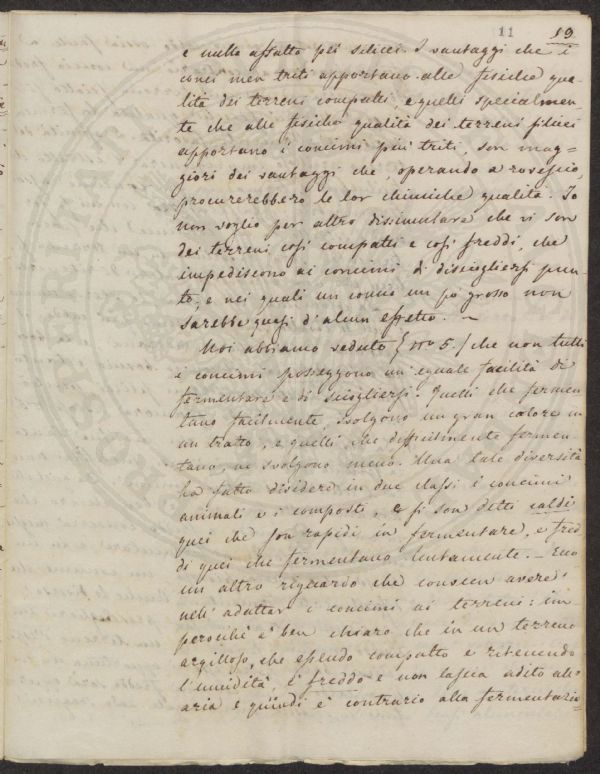 11 19
e nulla affatto pei silicei. I vantaggi che i
conci men triti apportano alle fisiche qua=
lità dei terreni compatti, e quelli specialmen=
te che alle fisiche qualità dei terreni silicei
apportano i concimi più triti, son mag=
giori dei vantaggi che, operando a rovescio,
procurerebbero le lor chimiche qualità. Io
non voglio per altro dissimulare che vi son
dei terreni così compatti e così freddi, che
impediscono ai concimi di disciogliersi pun=
to, e nei quali un concio un po grosso non
sarebbe quasi d'alcun effetto. —
Noi abbiamo veduto (nº 5.) che non tutti
i concimi posseggono un'eguale facilità di
fermentare e di sciogliersi. Quelli che fermen
tano facilmente, svolgono un gran calore in
un tratto, e quelli che difficilmente fermen=
tano, ne svolgono meno. Una tale diversità
ha fatto dividere in due classi i concimi
animali e i composti, e si son detti caldi
quei che son rapidi in fermentare, e fred
di quei che fermentano lentamente. — Ecco
un altro riguardo che convien avere
nell'adattar i concimi ai terreni: im=
perocchè è ben chiaro che in un terreno
argilloso, che essendo compatto e ritenendo
l'umidità, è freddo e non lascia adito all'
aria e quindi è contrario alla fermentazio=